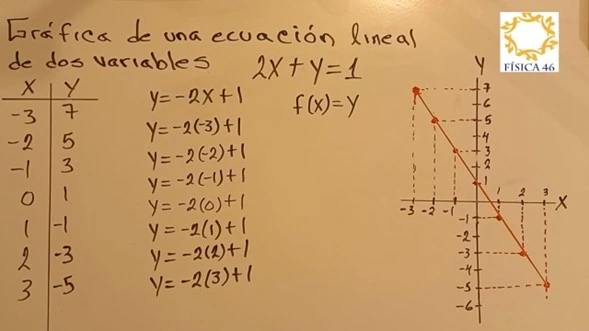 Gráfica de una ecuación lineal
de dos variables 2X+y=1
FÍSICA 46
X Y
-3 7
-2 5
-1 3
0 1
1 -1
2 -3
3 -5
y=-2X+1
y=-2(-3)+1
y=-2(-2)+1
y=-2(-1)+1
y=-2(0)+1
y=-2(1)+1
y=-2(2)+1
y=-2(3)+1
f(x)=y
Y
7
6
5
4
3
2
1
-3 -2 -1 1 2 3 X
-1
-2
-3
-4
-5
-6